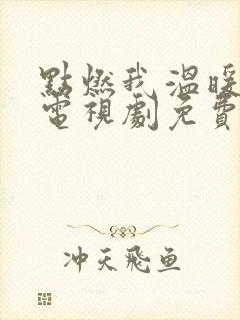 點燃我溫暖
電視劇免費
冲天飛鱼